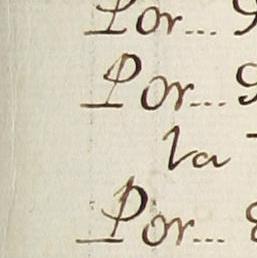 Por...
Por...
la
Por...